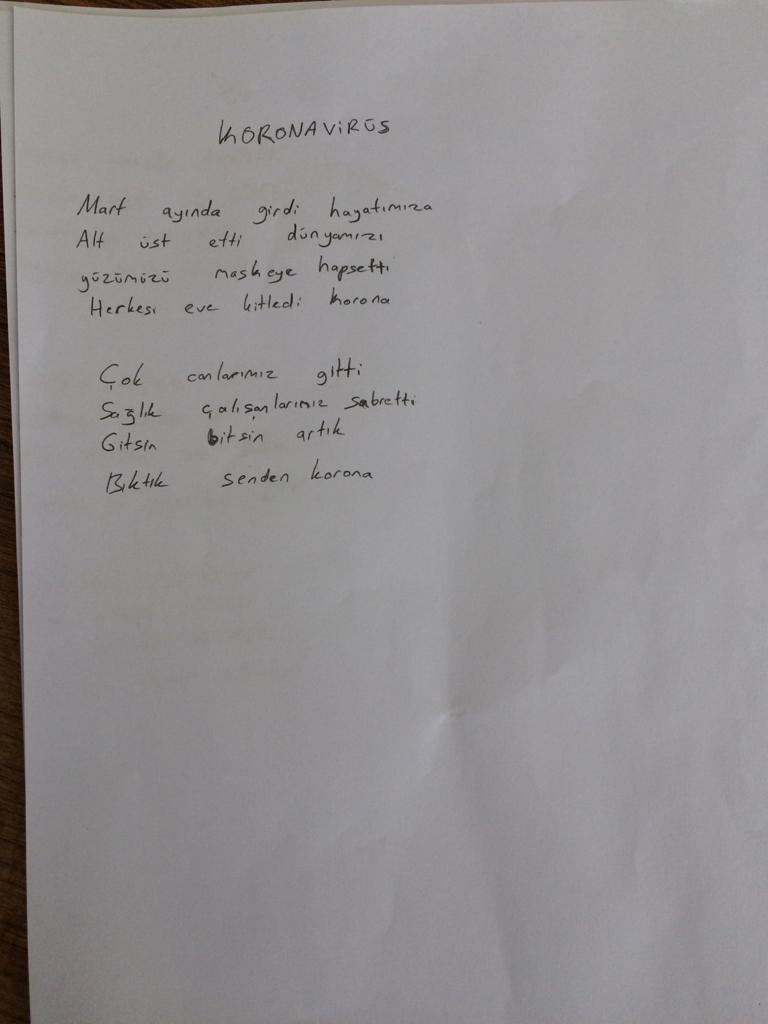 KORONAVİRÜS
Mart ayında girdi hayatımıza
Alt üst etti dünyamızı
yüzümüzü maskeye hapsetti
Herkesi eve kitledi korona
Çok canlarımız gitti
Sağlık çalışanlarımız sabretti
Gitsin bitsin artık
Bıktık senden korona